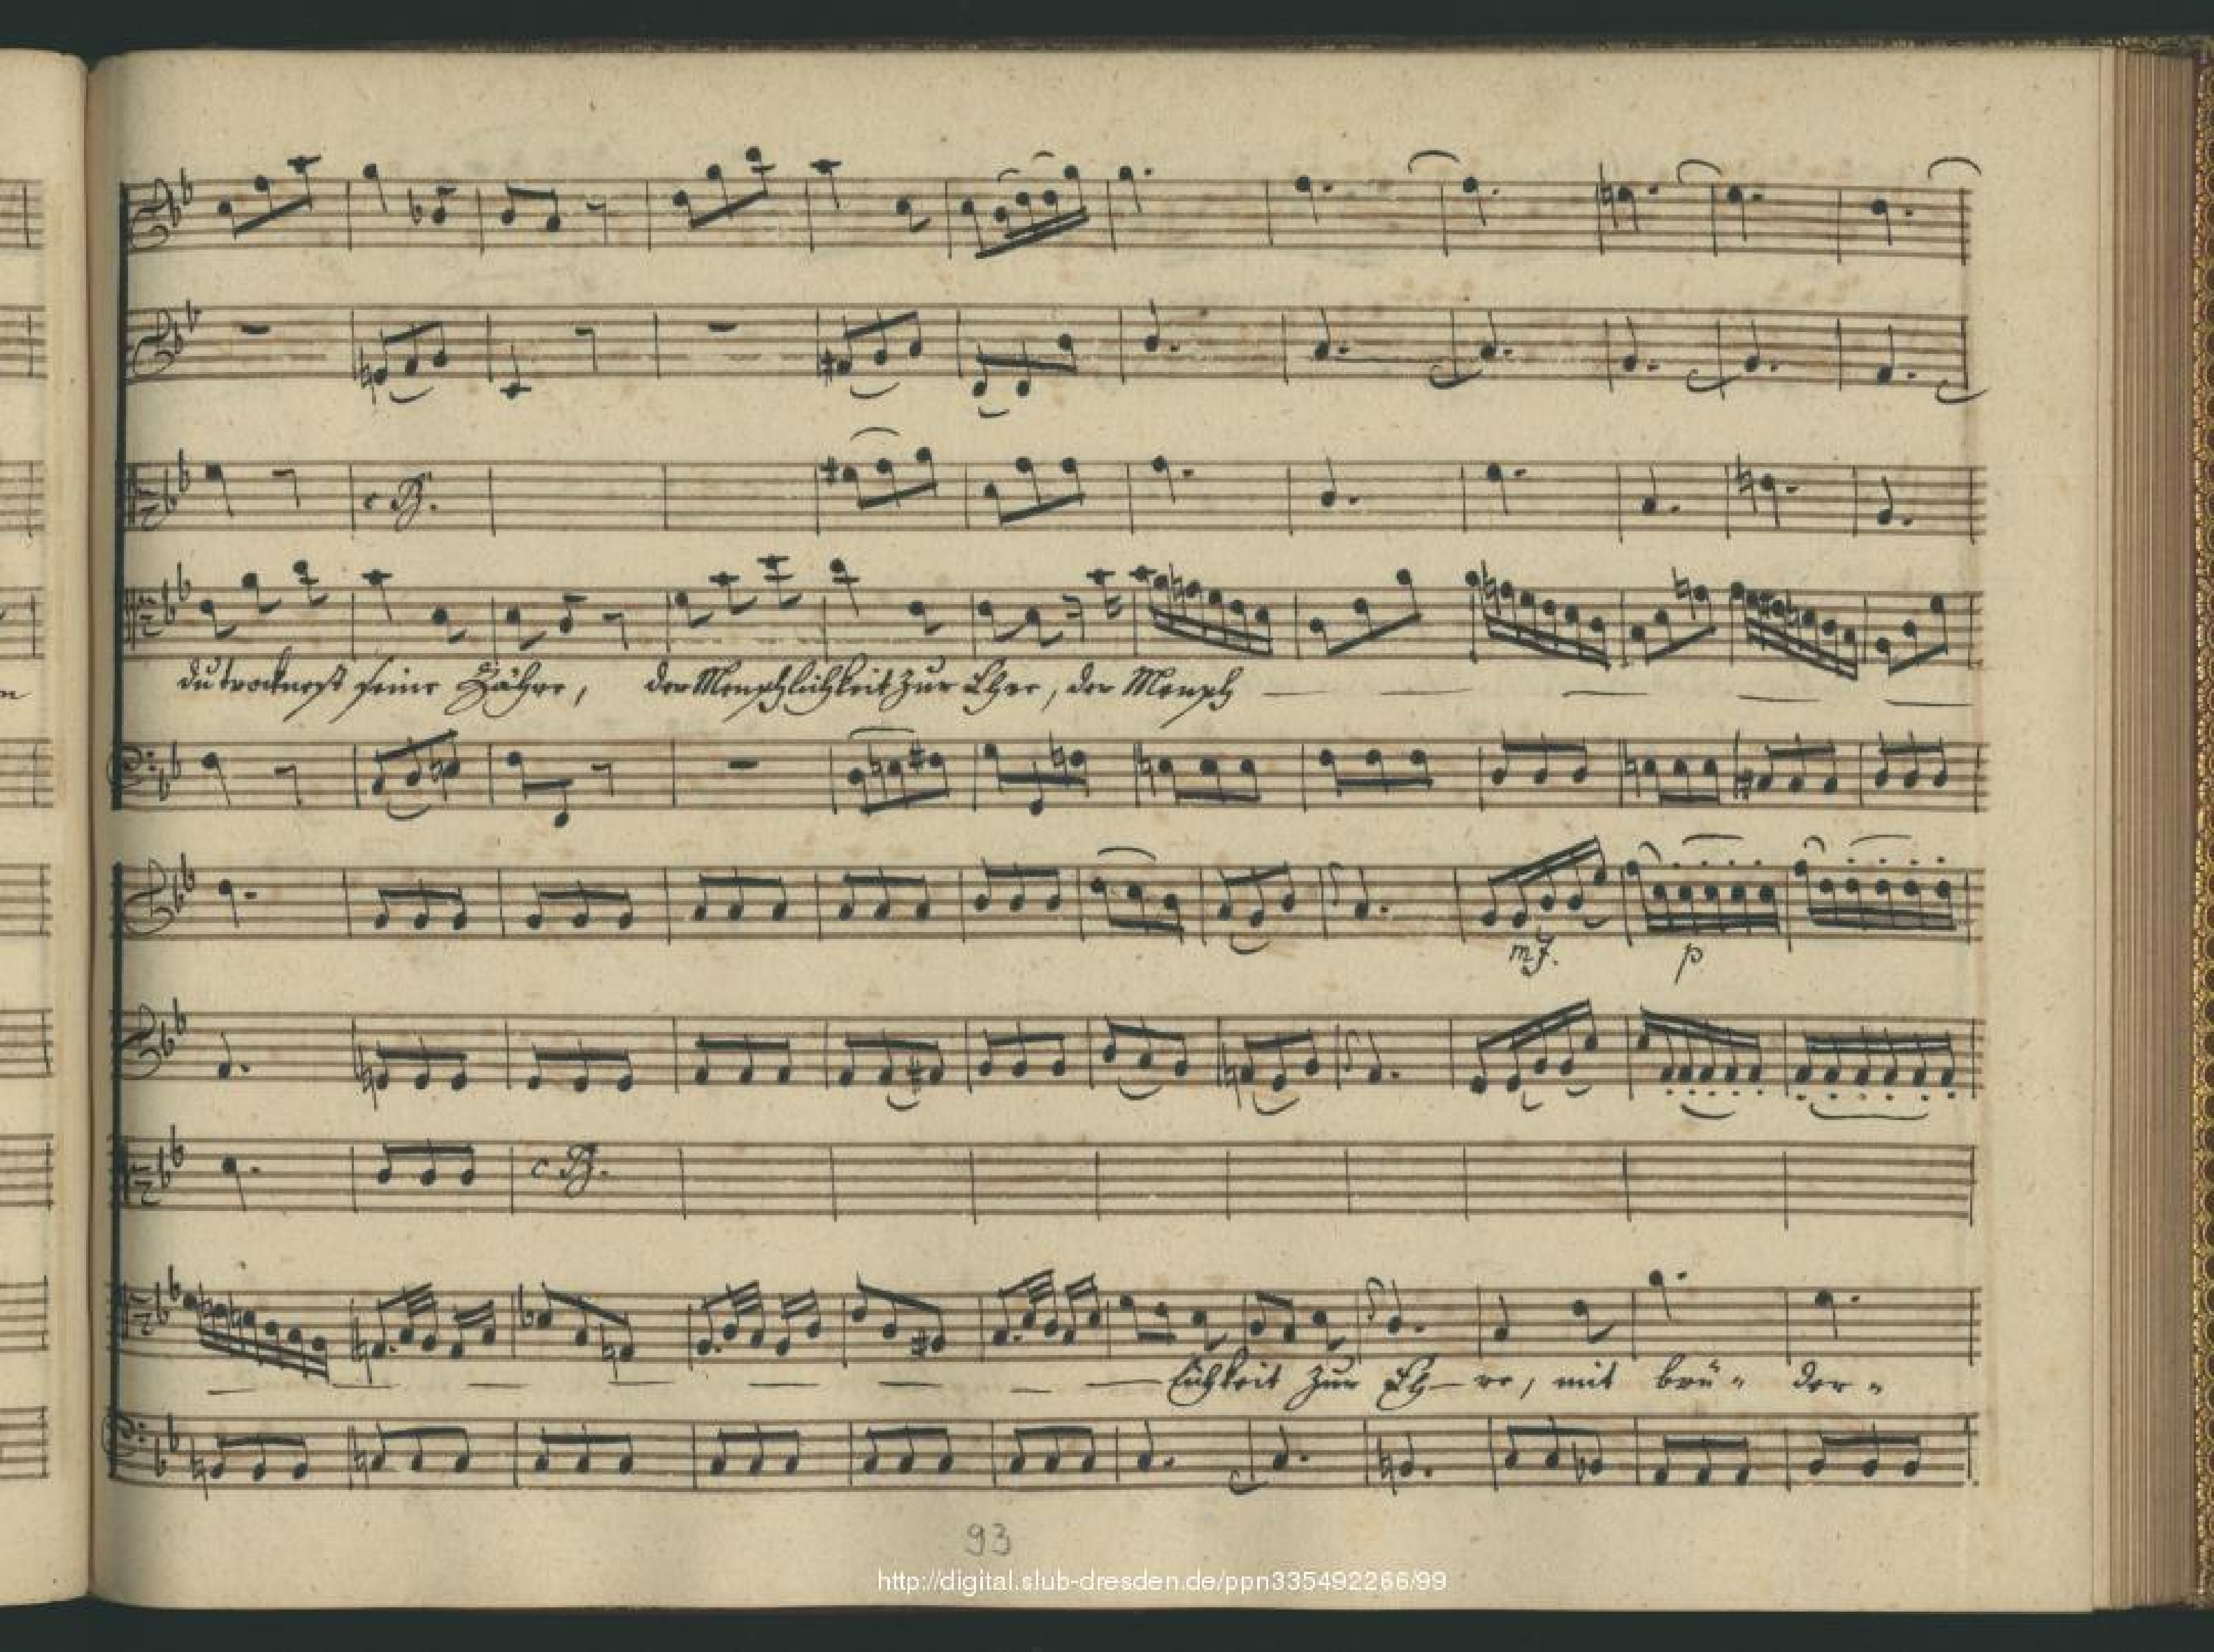 c B.
du trocknest seine Zähre, der Menschlichkeit zur Ehre, der Mensch
mf. p
c B.
lichkeit zur Eh - re, mit brü - der -
93
http://digital.slub-dresden.de/ppn335492266/99